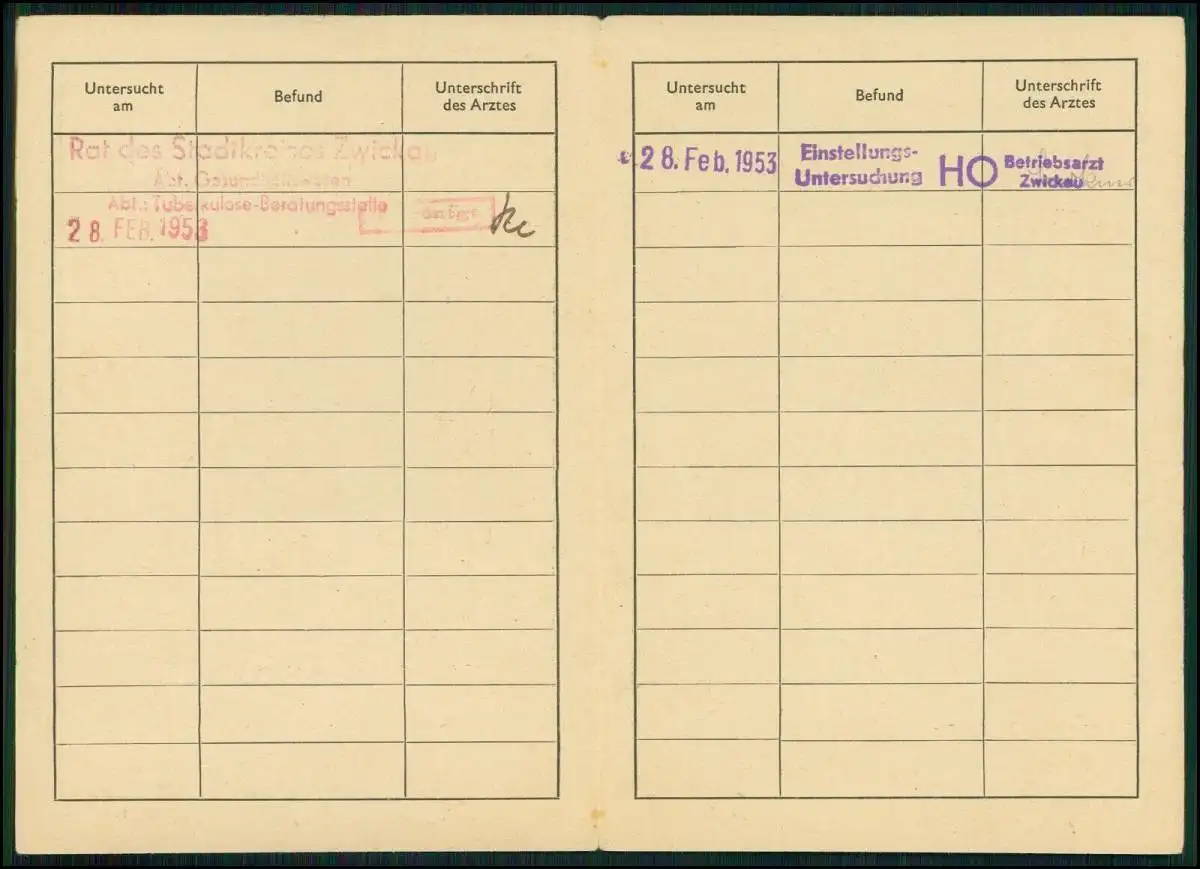 Untersucht
am
Befund
Unterschrift
des Arztes
Rat des Stadtkreises Zwickau
Abt. Gesundheitswesen
Abt.: Tuberkulose-Beratungsstelle
28. FEB. 1953
Untersucht
am
Befund
Unterschrift
des Arztes
28. Feb. 1953
Einstellungs-
Untersuchung
HO
Betriebsarzt
Zwickau